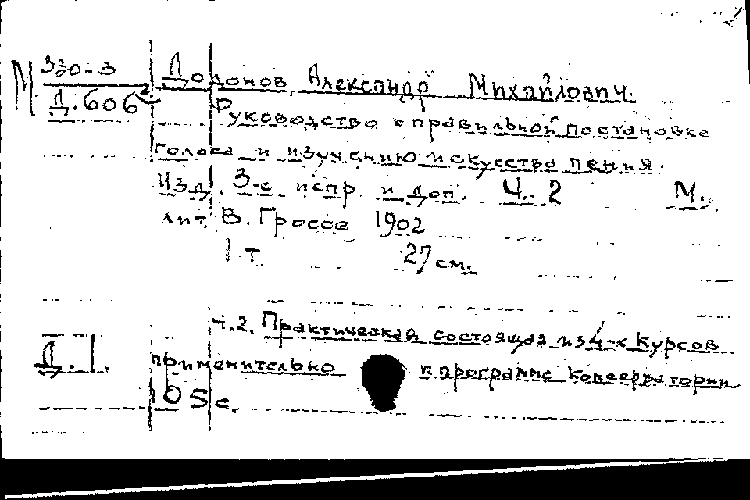 М 330-3 Додонов Александр Михайлович.
Д.606 Руководство к правильной постановке
голоса и изучению искусства пения.
Изд. 3-е испр. и доп. Ч. 2 М.
лит. В. Гроссе 1902
1 т. 27 см.
ч.2. Практическая состоящая из 4-х курсов
Д.1. применительно к программе консерватории
105 с.